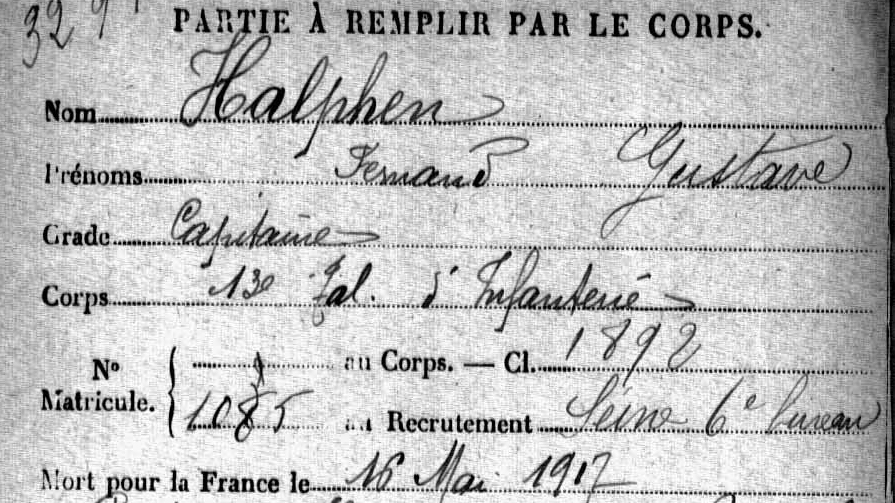 329
PARTIE À REMPLIR PAR LE CORPS.
Nom Halphen
Prénoms Fernand Gustave
Grade Capitaine
Corps 13e d'Infanterie
au Corps. — Cl. 1892
No Matricule.
1085 au Recrutement Seine 6e bureau
Mort pour la France le 16 Mai 1917